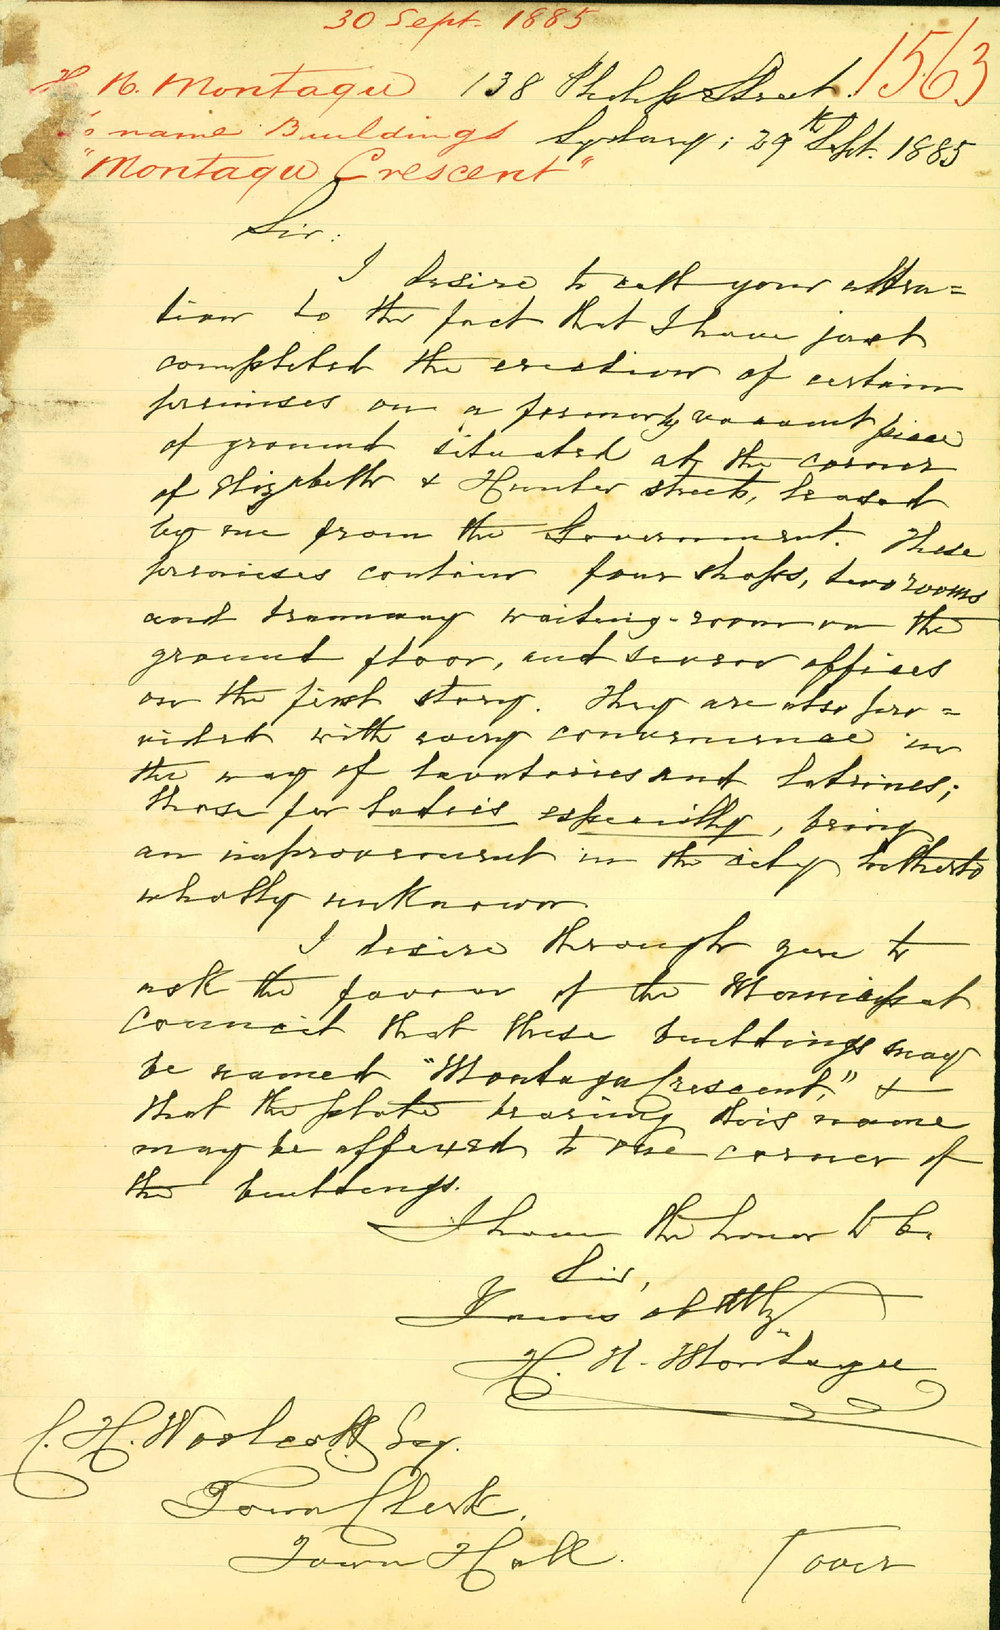 30 Sept. 1885
1563
H. N. Montague
to name Buildings
"Montague Crescent"
138 Phillip Street.
Sydney; 29th Sept. 1885
Sir:
I desire to call your atten=
tion to the fact that I have just
completed the erection of certain
premises on a formerly vacant piece
of ground situated at the corner
of Elizabeth & Hunter streets, leased
by me from the Government. These
premises contain four shops, two rooms
and tramway waiting-room on the
ground floor, and seven offices
on the first story. They are also pro=
vided with every convenience in
the way of lavatories and latrines;
those for ladies especially, being
an improvement in the city hitherto
wholly unknown
I desire through you to
ask the favor of the Municipal
Council that these buildings may
be named "Montague Crescent," &
that the plate bearing this name
may be affixed to the corner of
the buildings.
I have the honor to be.
Sir,
Yours obdtly
H. N. Montague
C. H. Woolcott Esq.
Town Clerk.
Town Hall.
over